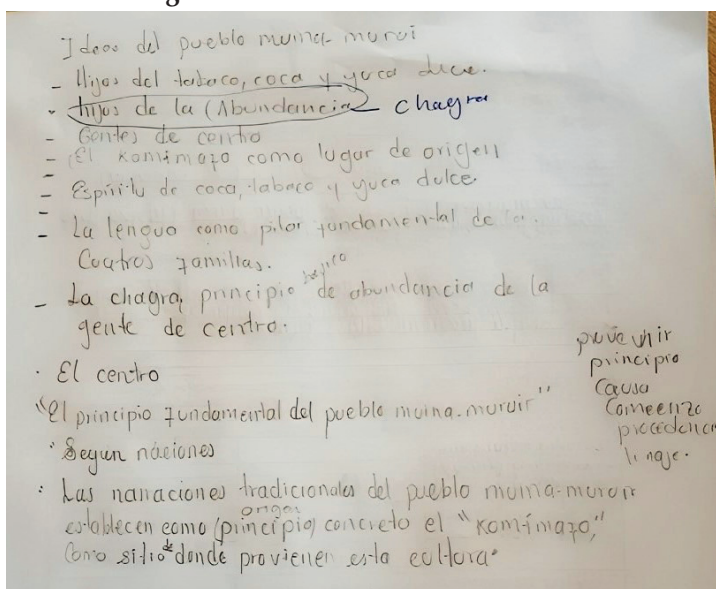 Ideas del pueblo muina-murui
- Hijos del tabaco, coca y yuca dulce.
- hijos de la (Abundancia) chagra
- Gentes de centro
- El Komimafo como lugar de origen
- Espiritu de coca, tabaco y yuca dulce.
- La lengua como pilar fundamental de
Cuatros familias.
- La chagra, principio de abundancia de la
gente de centro.
· El centro
"El principio fundamental del pueblo muina-muruir"
· Segun naciones
: Las narraciones tradicionales del pueblo muina-muruir
origen
establecen como (principio) concreto el "Komimafo,"
Como sitio de donde provienen esta cultura.
provenir
principio
Causa
Comeenzo
procedencia
linaje.